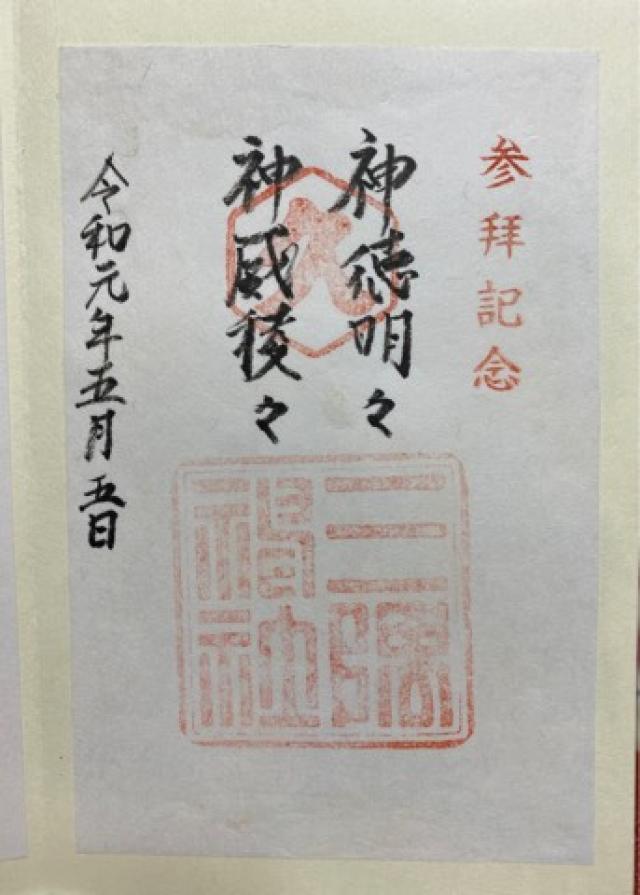 参拝記念
神徳明々
神威稜々
大
令和元年五月五日